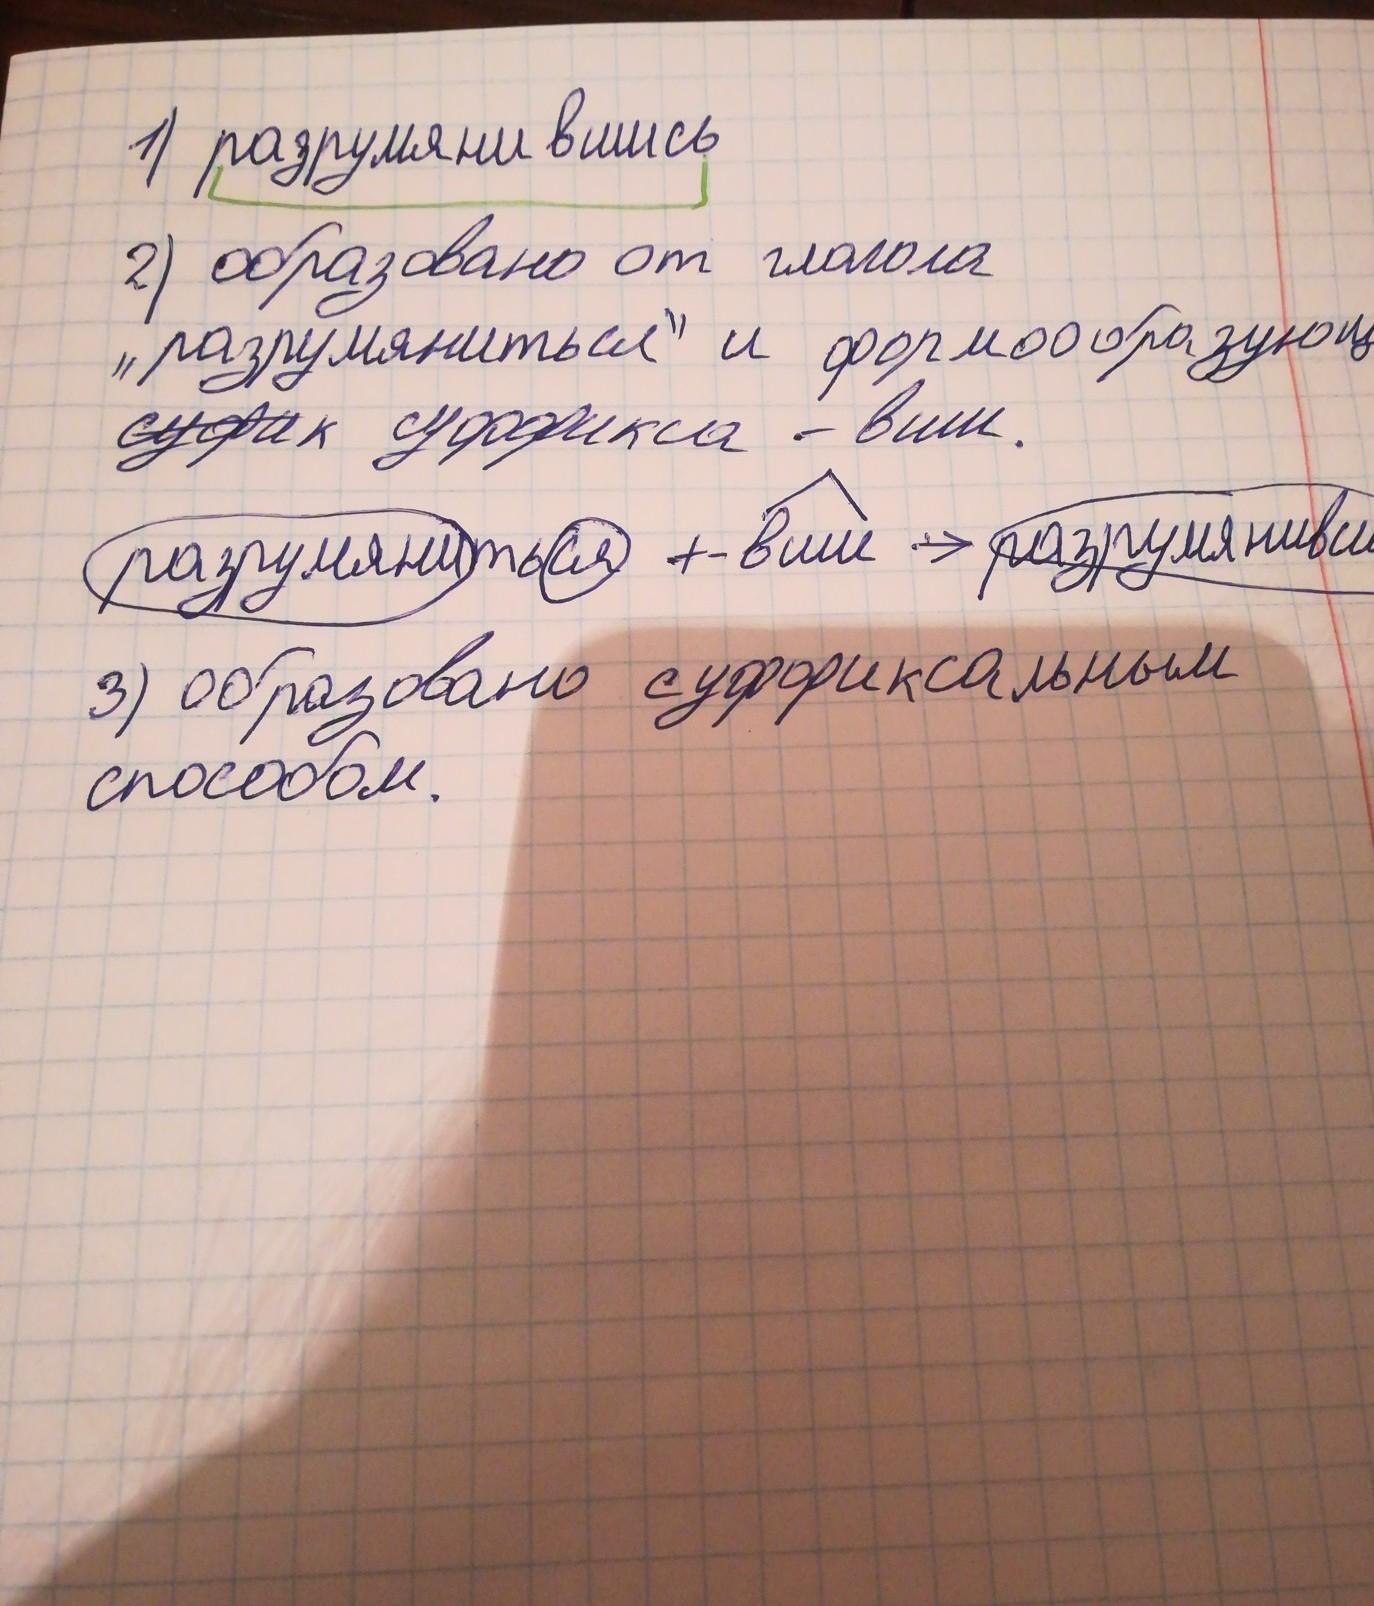 1) разрумянившись
2) образовано от глагола
„разрумяниться" и формообразующ
суфик суффикса - вши.
разрумяниться + -вши -> разрумянивши
3) образовано суффиксальным
способом.